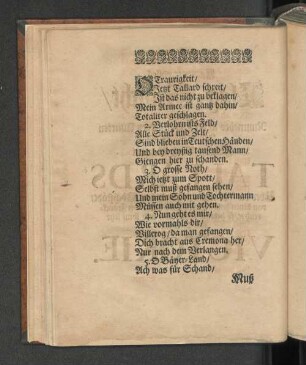 O Traurigkeit/
Jetzt Tallard schreit/
Ist das nicht zu beklagen/
Mein Armee ist gantz dahin/
Totaliter geschlagen.
2. Verlohren ists Feld/
Alle Stück und Zelt/
Sind blieben in Teutschen Händen/
Und bey dreyßig tausend Mann/
Giengen hier zu schanden.
3. O grosse Noth/
Mich jetzt zum Spott/
Selbst muß gefangen sehen/
Und mein Sohn und Tochtermann
Müssen auch mit gehen.
4. Nun geht es mir/
Wie vormahls dir/
Villeroy/ da man gefangen/
Dich bracht aus Cremona her/
Nur nach dem Verlangen.
5. O Bäyer-Land/
Ach was für Schand/
Muß